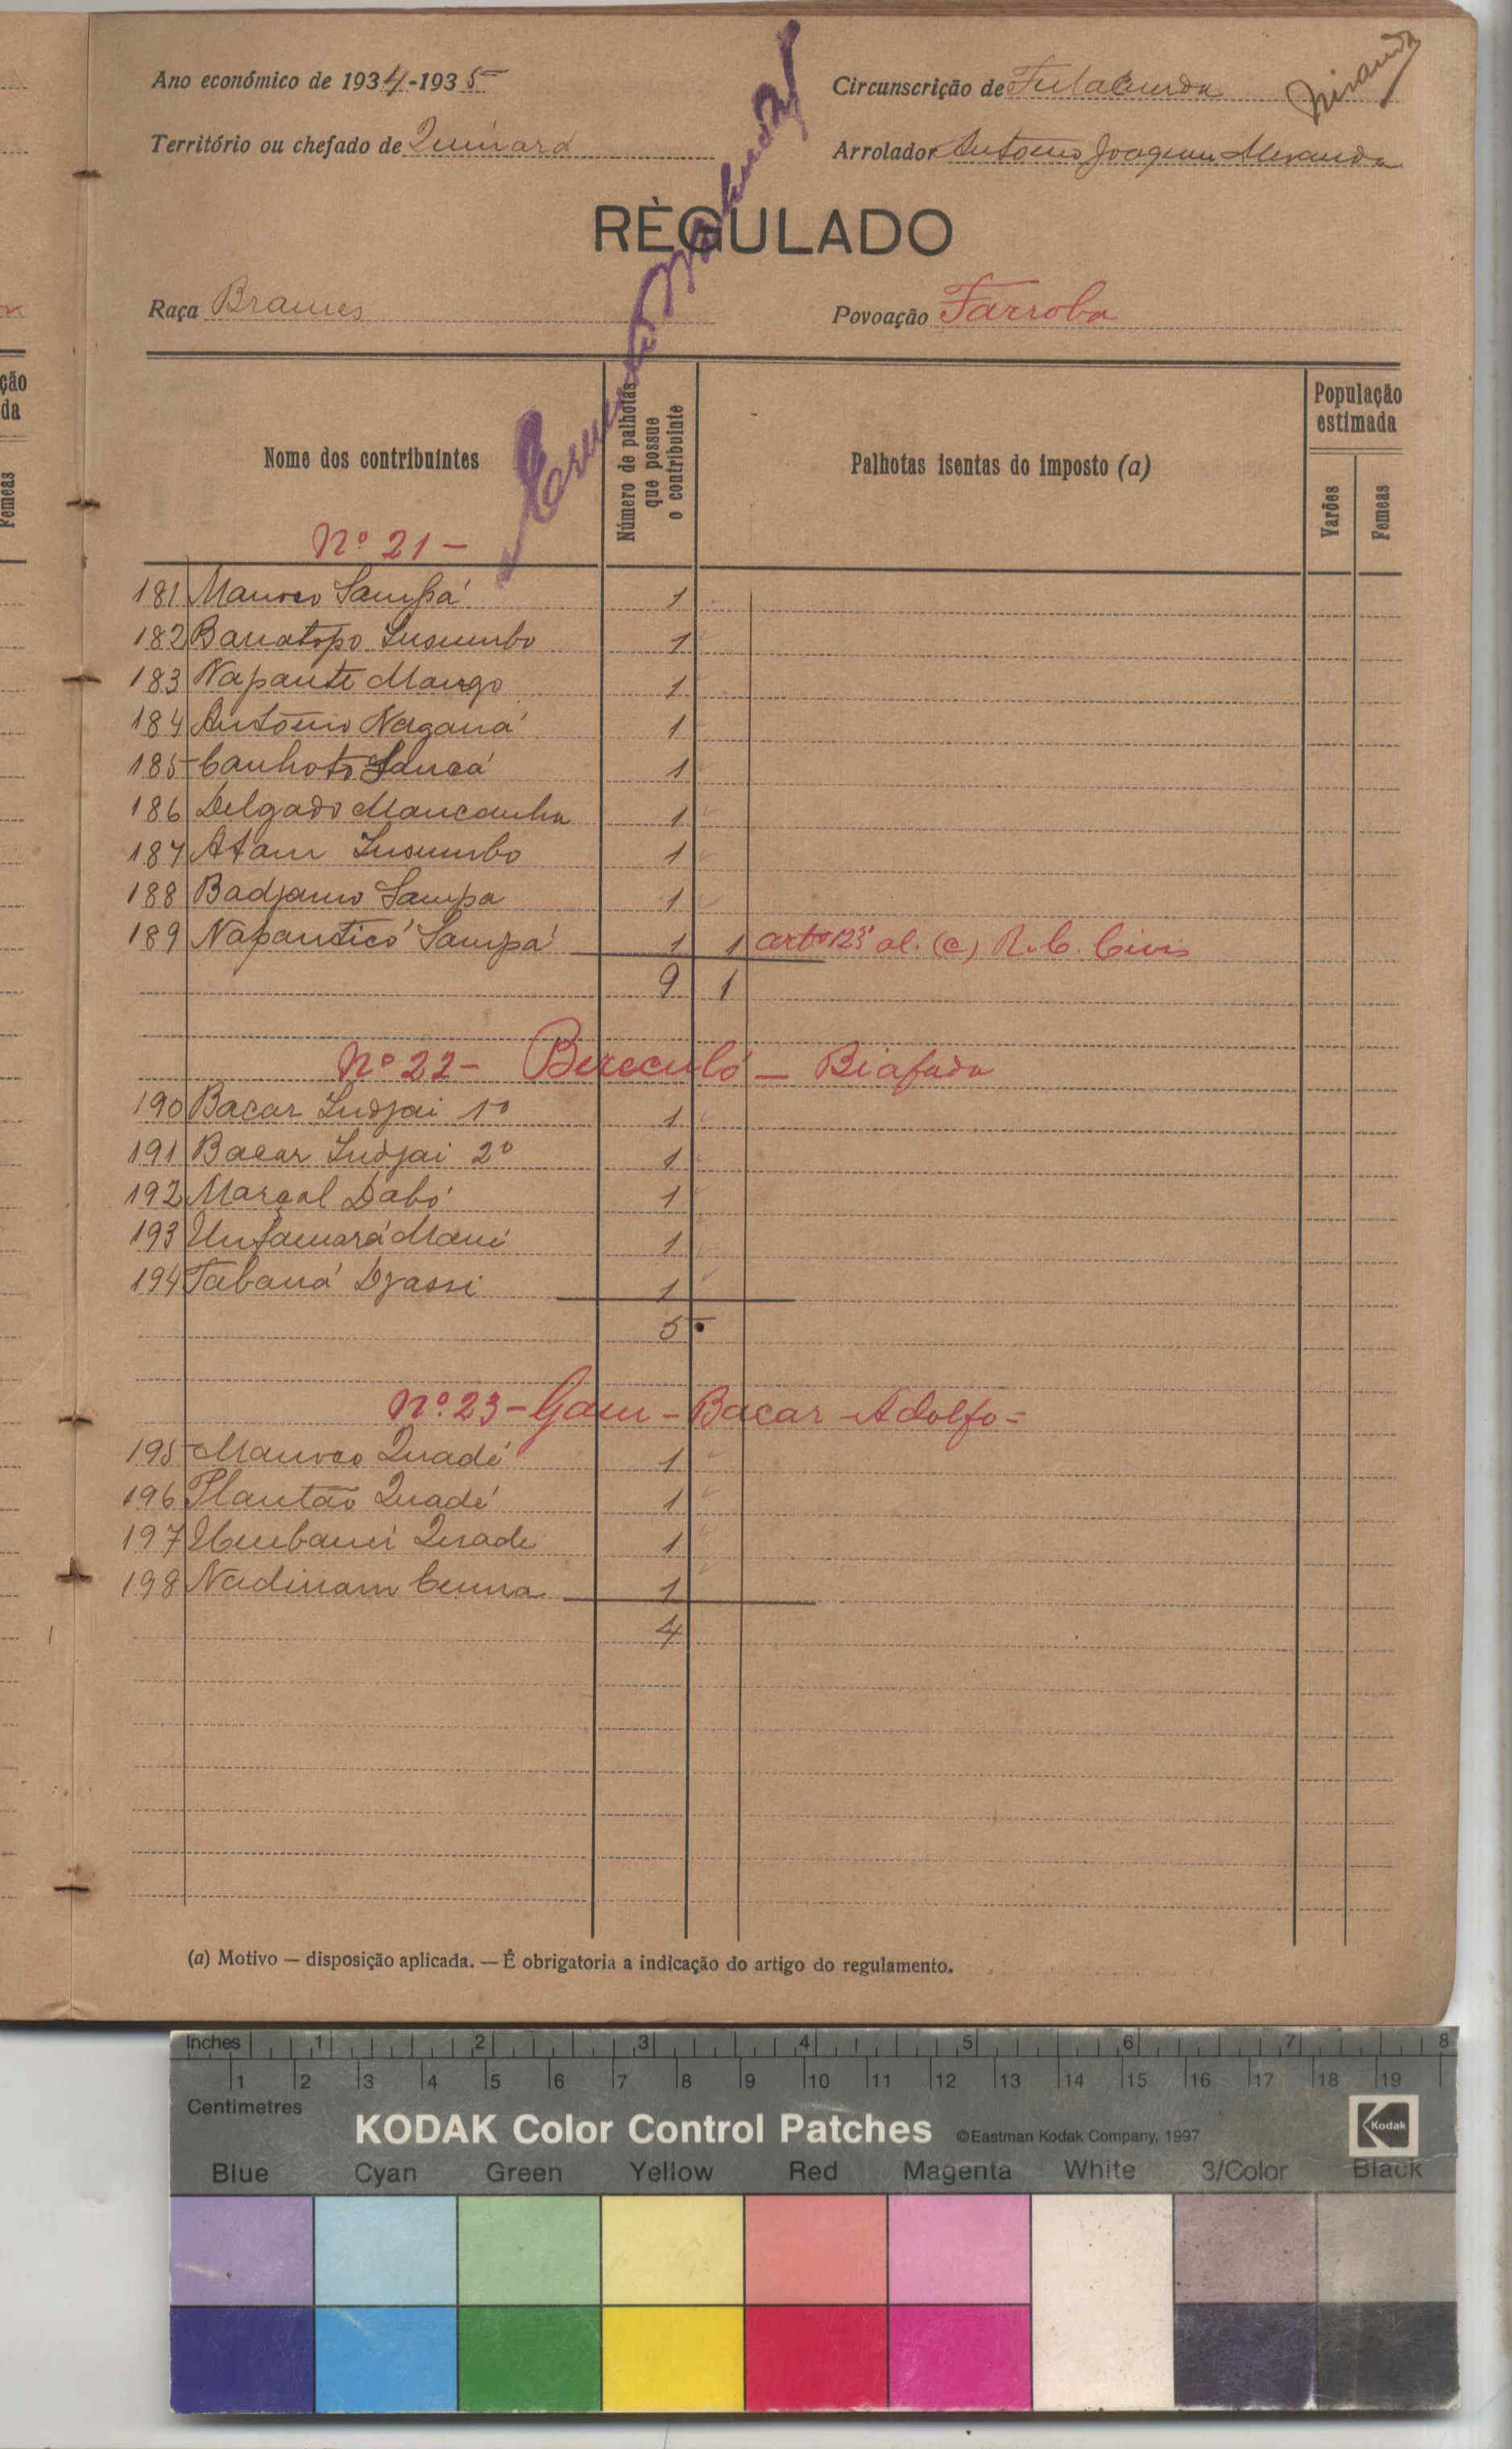 Ano económico de 1934-1935
Circunscrição de Fulacunda
Miranda
Território ou chefado de Quinará
Arrolador António Joaquim Miranda
RÈGULADO
Raça Brames
Povoação Farroba
Nome dos contribuintes
Número de palhotas que possue o contribuinte
Palhotas isentas do imposto (a)
População estimada
Varões
Femeas
Nº 21 -
181 Sampá 1
182 1
183 Napante Mango 1
184 António Naganá 1
185 Canhoto Sancá 1
186 Delgado Mancanha 1
187 Atam 1
188 Badjamo Sampa 1
189 Napanticó Sampá 1 1 artº 123 al. (c) R. C. Civis
9 1
Nº 22 - Bereculó - Biafada
190 Bacar Indjai 1º 1
191 Bacar Indjai 2º 1
192 Marçal Dabó 1
193 Unfamará Mané 1
194 Tabaná Djassi 1
5
Nº 23 - Gam - Bacar - Adolfo =
195 Quadé 1
196 Plantão Quadé 1
197 Quade 1
198 1
4
(a) Motivo — disposição aplicada. — É obrigatoria a indicação do artigo do regulamento.
ção
da
Femeas
Inches 1 2 3 4 5 6 7 8
1 2 3 4 5 6 7 8 9 10 11 12 13 14 15 16 17 18 19
Centimetres
KODAK Color Control Patches ©Eastman Kodak Company, 1997 Kodak
Blue Cyan Green Yellow Red Magenta White 3/Color Black